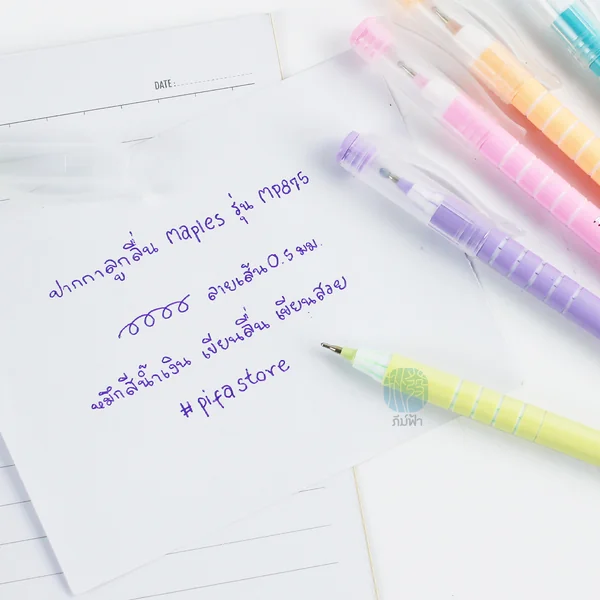 DATE:
ปากกาลูกลื่น Maples รุ่น MP875
ลายเส้น 0.5 มม.
หมึกสีน้ำเงิน เขียนลื่น เขียนสวย
#pifastore
ภีม์ฟ้า